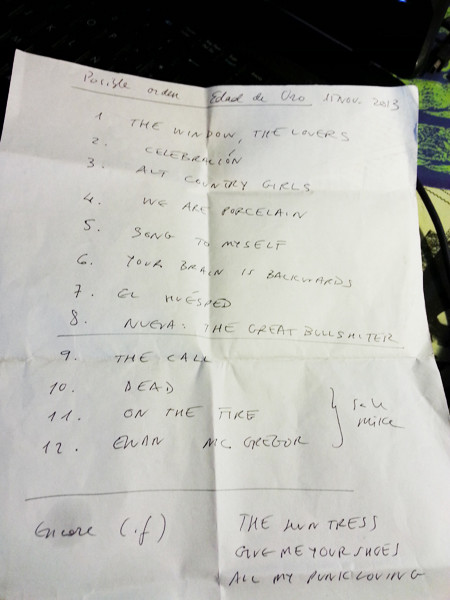 Posible orden Edad de Oro 15 NOV. 2013
1 THE WINDOW, THE LOVERS
2. CELEBRACIÓN
3. ALT COUNTRY GIRLS
4. WE ARE PORCELAIN
5. SONG TO MYSELF
6. YOUR BRAIN IS BACKWARDS
7. EL HUÉSPED
8. NUEVA: THE GREAT BULLSHITER
9. THE CALL
10. DEAD
11. ON THE FIRE
12. EWAN MC. GREGOR
mike
Encore (if)
THE HUNTRESS
GIVE ME YOUR SHOES
ALL MY PUNK LOVING